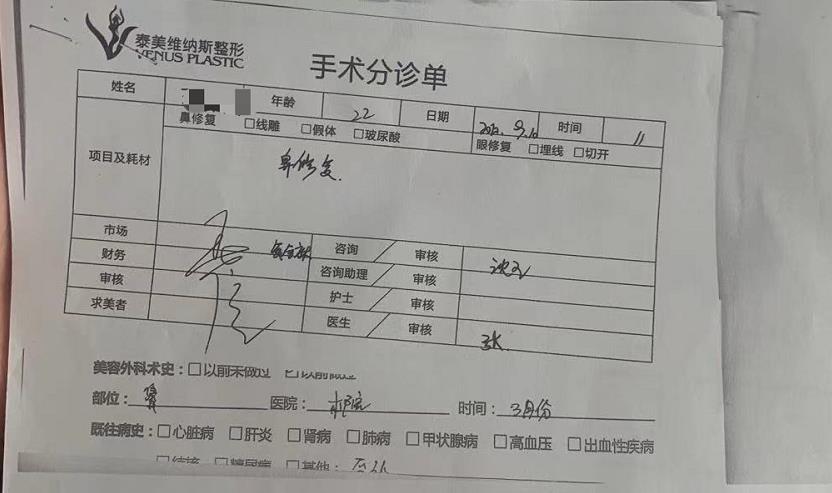 泰美维纳斯整形
VENUS PLASTIC
手术分诊单
姓名 年龄 22 日期 9.10 时间 11
项目及耗材 鼻修复 □线雕 □假体 □玻尿酸 眼修复 □埋线 □切开
鼻修复
市场 咨询 审核
财务 咨询助理 审核
审核 护士 审核
求美者 医生 审核 张
美容外科术史：□以前未做过 □以前做过
部位： 鼻 医院： 时间： 3月份
既往病史：□心脏病 □肝炎 □肾病 □肺病 □甲状腺病 □高血压 □出血性疾病
□结核 □糖尿病 □其他：